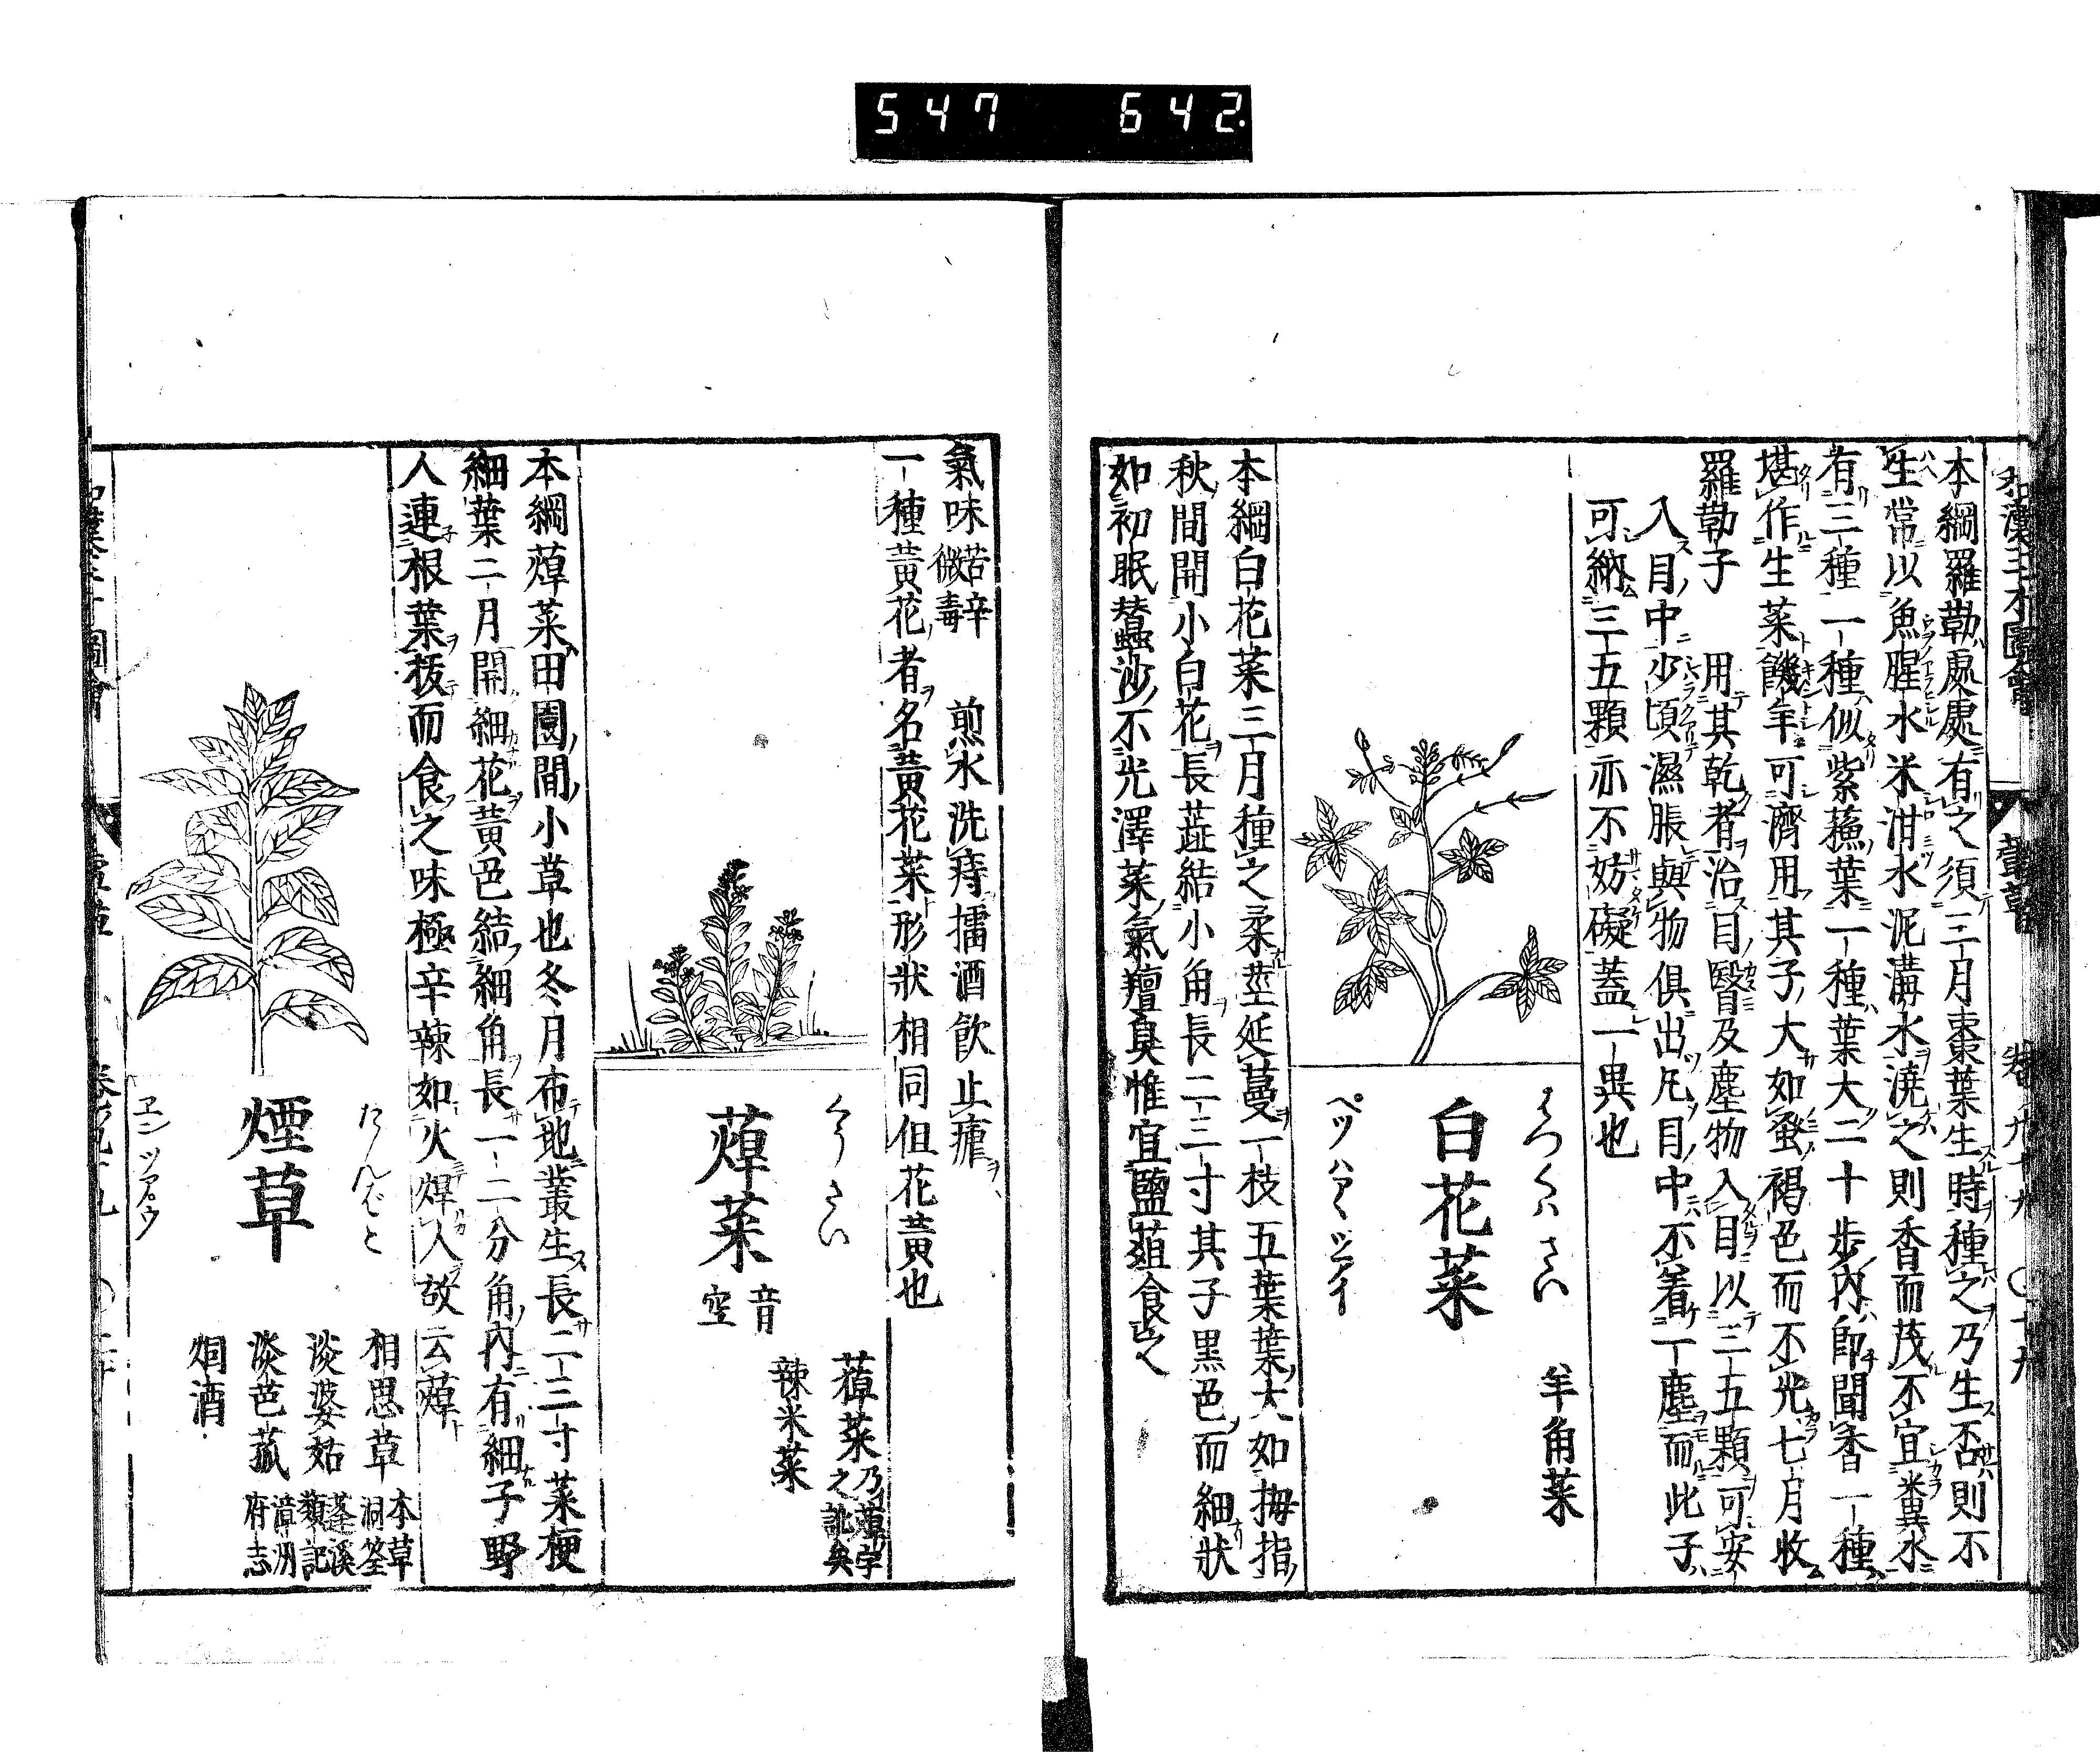 547 642
和漢三才圖會 葷草 卷ノ九十九 〇十九
本綱羅勒處處有之須三月棗葉生時種之乃生否則不
生常以魚腥水米泔水泥溝水澆之則香而茂不宜糞水
有三種一種似紫蘓葉一種葉大二十步內即聞香一種
堪作生菜饑年可濟用其子大如蚤褐色而不光七月收
羅勒子 用其乾者治目瞖及塵物入目以三五顆可安
入目中少頃濕脹與物俱出凡目中不着一塵而此子
可納三五顆亦不妨礙蓋一異也
はつくハさい
白花菜
ペツハアヽツァイ
羊角菜
本綱白花菜三月種之柔莖延蔓一枝五葉葉大如拇指
秋間開小白花長蕋結小角長二三寸其子黑色而細狀
如初眠蠶沙不光澤菜氣羶臭惟宜鹽葅食之
氣味 苦辛微毒 煎水洗痔擂酒飲止瘧
一種黃花者名黃花菜形狀相同但花黃也
くうさい
蔊菜 音空
蔊菜 乃蔊字之訛矣
辣米菜
本綱蔊菜田園間小草也冬月布地叢生長二三寸菜梗
細葉二月開細花黃色結細角長一二分角內有細子野
人連根葉拔而食之味極辛辣如火焊人故云蔊
たんばこ
煙草
ヱンツァウ
相思草 本草洞筌
淡婆姑 蓬溪類記
淡芭菰 漳州府志
烟酒